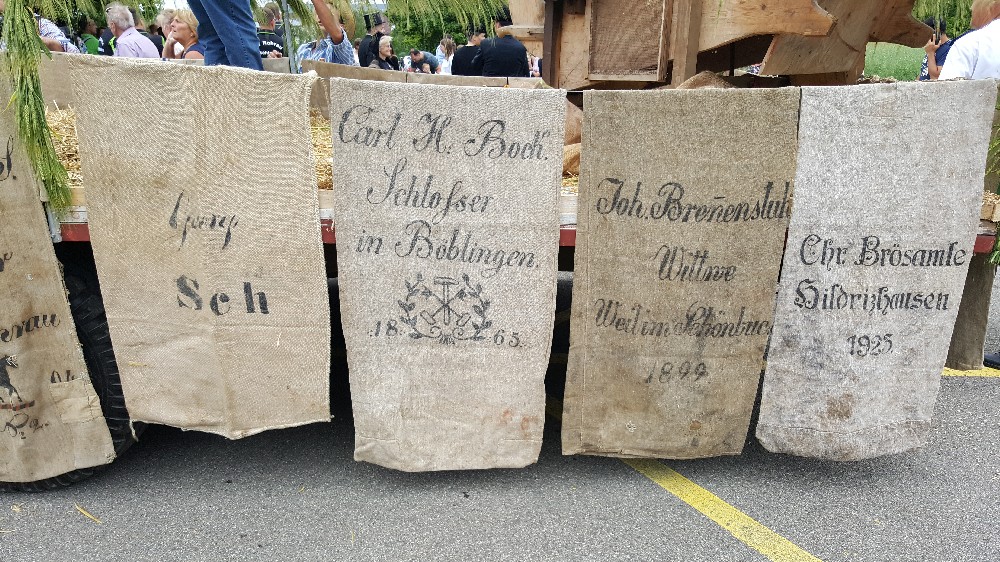 Sch
Carl H. Bock.
Schlosser
in Böblingen.
1865.
Joh. Breñenstuhl
Wittwe
Weil im Schönbuch
1899
Chr. Brösamle
Hildrizhausen
1925